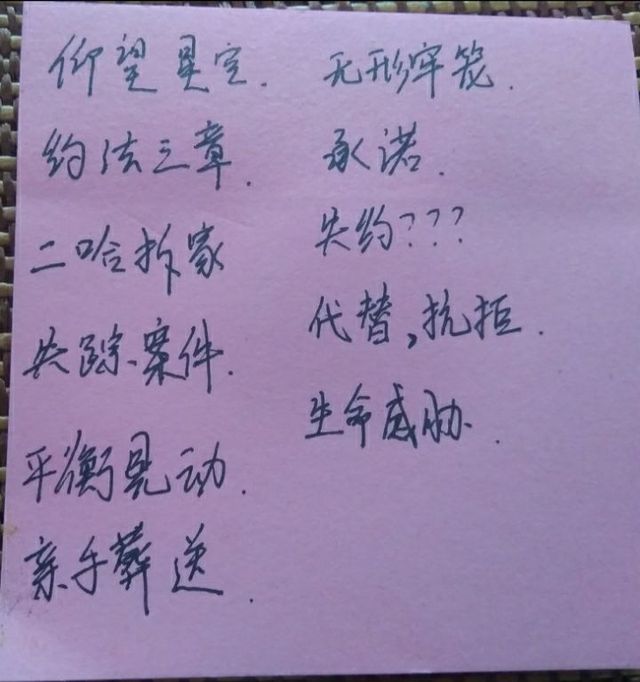 仰望星空.
约法三章.
二哈拆家
失踪案件.
平衡晃动.
亲手葬送.
无形牢笼.
承诺.
失约???
代替,抗拒.
生命威胁.